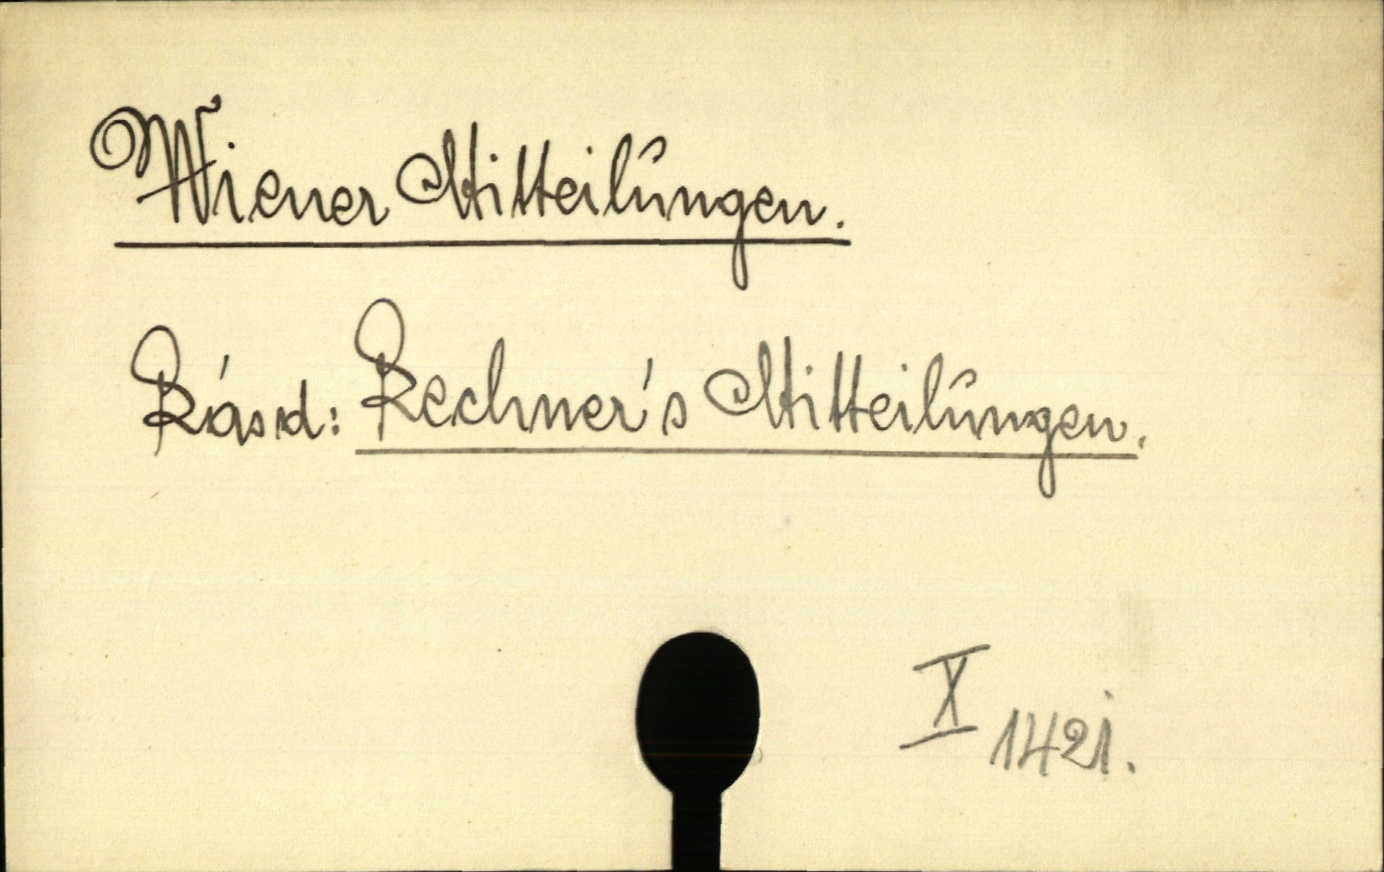 Wiener Mitteilungen.
Lásd: Lechner's Mitteilungen.
X 1421.